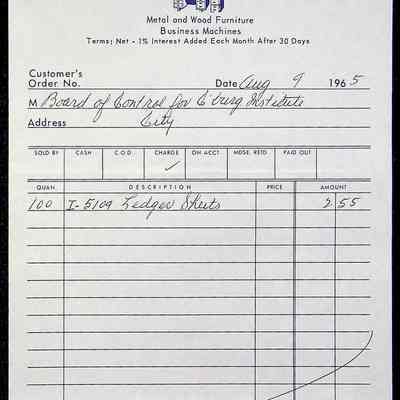 Metal and Wood Furniture
Business Machines
Terms; Net - 1% Interest Added Each Month After 30 Days
Customer's
Order No. Date Aug 9 1965
M Board of Control for E'burg Institute
Address City
SOLD BY CASH C.O.D. CHARGE ON ACCT. MDSE. RETD. PAID OUT
✓
QUAN. DESCRIPTION PRICE AMOUNT
100 I-5109 Ledger Sheets 2 55